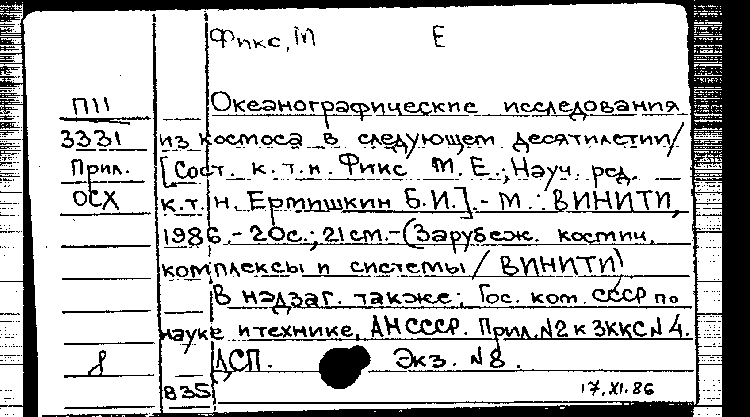 Фикс, М Е
П11 Океанографические исследования
3331 из космоса в следующем десятилетии/
Прил. [Сост. к.т.н. Фикс М.Е.; Науч. ред.
ОСХ к.т.н. Ермишкин Б.И.].- М.: ВИНИТИ,
1986.- 20с.; 21см.- (Зарубеж. космич.
комплексы и системы / ВИНИТИ)
В надзаг. также: Гос. ком. СССР по
науке и технике, АН СССР. Прил. N2 к ЗККС N4.
ДСП. Экз. N8.
835 17.XI.86